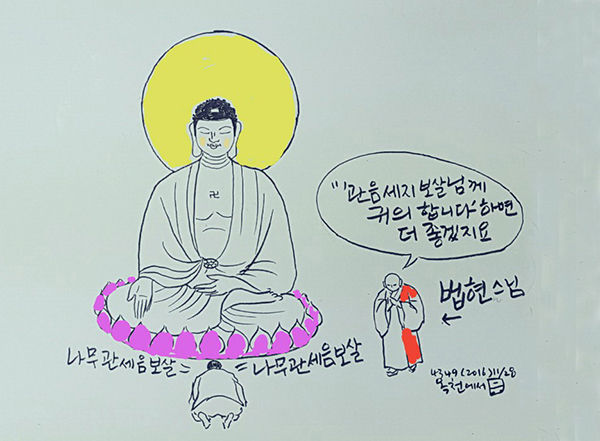 卍
"'관음세지보살님께
귀의 합니다'하면
더 좋겠지요
법현스님
나무관세음보살 = = 나무관세음보살
4349(2016)11/28